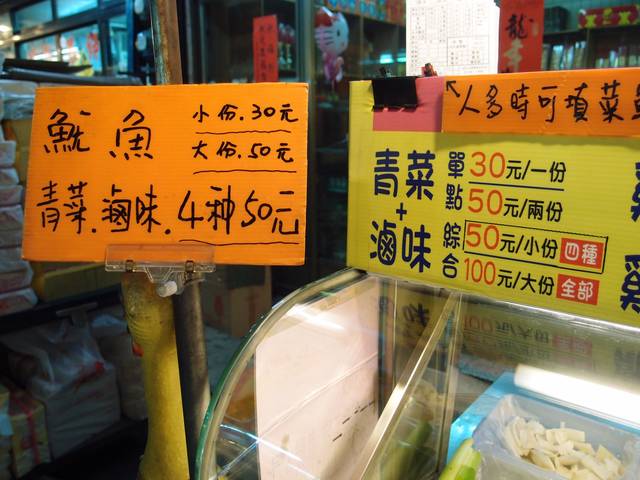 魷魚 小份.30元
大份.50元
青菜.滷味.4种50元
人多時可填菜
青菜+滷味
單點 30元/一份
50元/兩份
綜合 50元/小份 四種
100元/大份 全部
龍